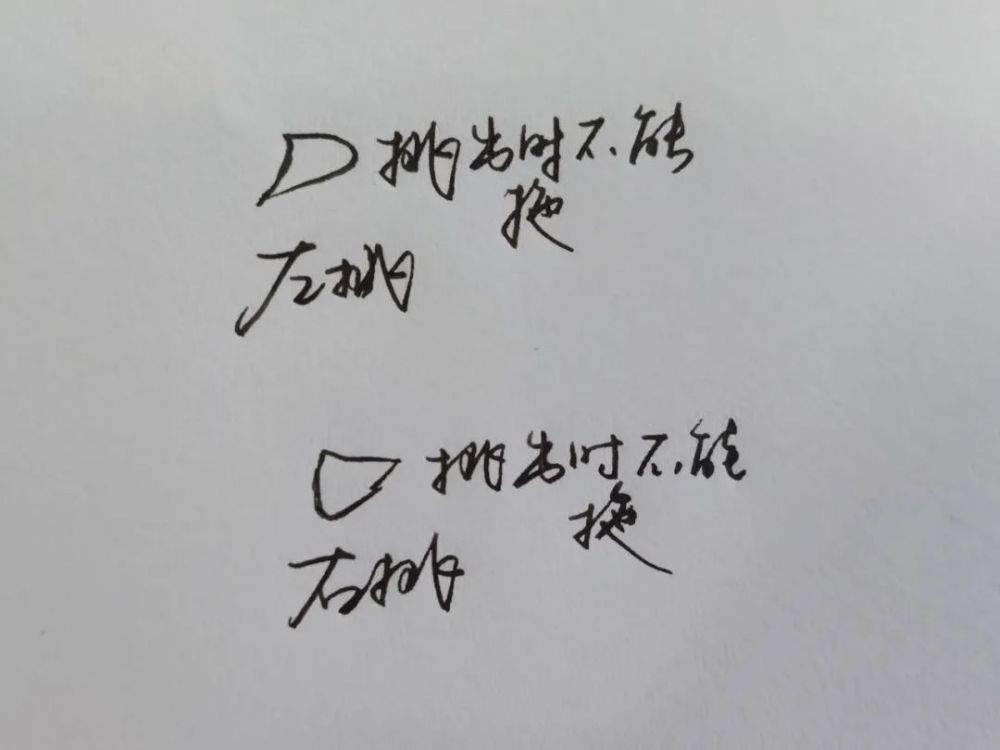 挑出时不能
拖
左挑
挑出时不能
拖
右挑